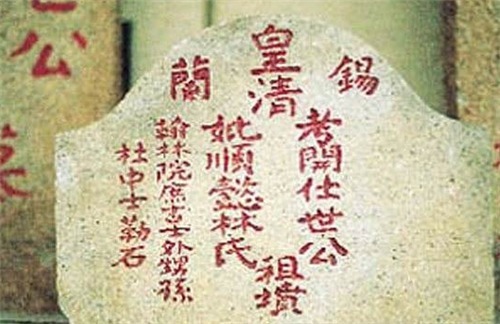 皇清
錫蘭
考開仕世公
妣順懿林氏
祖墳
翰林院庶吉士外甥孫
杜申士勒石
公